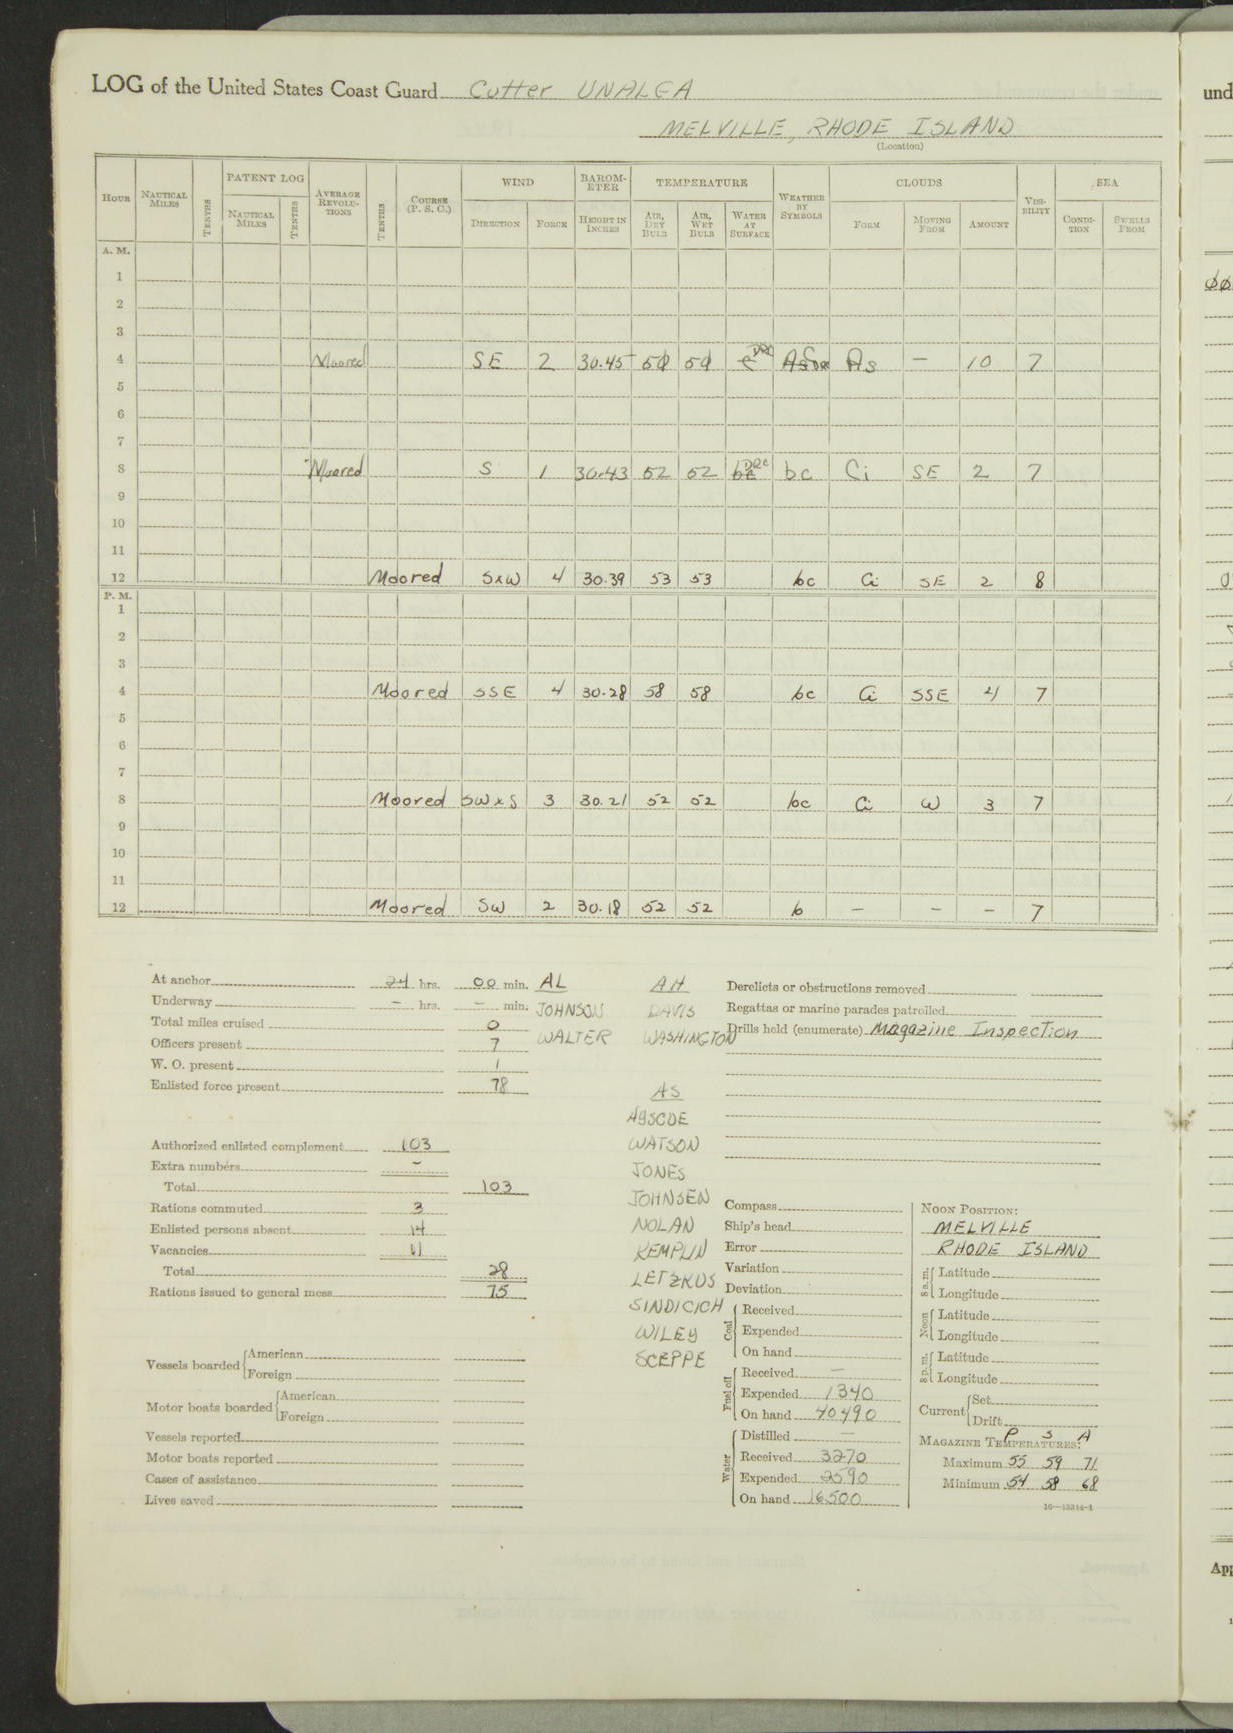 LOG of the United States Coast Guard Cutter UNALGA
MELVILLE, RHODE ISLAND
(Location)
HOUR NAUTICAL MILES TENTHS PATENT LOG NAUTICAL MILES TENTHS AVERAGE REVOLU-TIONS TENTHS COURSE (P. S. C.) WIND DIRECTION FORCE BAROM-ETER HEIGHT IN INCHES TEMPERATURE AIR, DRY BULB AIR, WET BULB WATER AT SURFACE WEATHER BY SYMBOLS CLOUDS FORM MOVING FROM AMOUNT VIS-IBILITY SEA CONDI-TION SWELLS FROM
A. M.
1
2
3
4 Moored SE 2 30.45 As — 10 7
5
6
7
8 Moored S 1 30.43 52 52 bc Ci SE 2 7
9
10
11
12 Moored SxW 4 30.39 53 53 bc Ci SE 2 8
P. M.
1
2
3
4 Moored SSE 4 30.28 58 58 bc Ci SSE 4 7
5
6
7
8 Moored SWxS 3 30.21 52 52 bc Ci W 3 7
9
10
11
12 Moored SW 2 30.18 52 52 b — — — 7
At anchor 24 hrs. 00 min.
Underway — hrs. — min.
Total miles cruised 0
Officers present 7
W. O. present 1
Enlisted force present 78
Authorized enlisted complement 103
Extra numbers —
Total 103
Rations commuted 3
Enlisted persons absent 14
Vacancies 11
Total 28
Rations issued to general mess 75
Vessels boarded American
Foreign
Motor boats boarded American
Foreign
Vessels reported
Motor boats reported
Cases of assistance
Lives saved
AL
JOHNSON
WALTER
AH
DAVIS
WASHINGTON
AS
WATSON
JONES
JOHNSEN
NOLAN
KEMPLIN
LETZKUS
SINDICICH
WILEY
SCEPPE
Derelicts or obstructions removed
Regattas or marine parades patrolled
Drills held (enumerate) Magazine Inspection
Compass
Ship's head
Error
Variation
Deviation
Coal Received
Expended
On hand
Fuel oil Received —
Expended 1340
On hand 40490
Water Distilled —
Received 3270
Expended 2590
On hand 16500
NOON POSITION:
MELVILLE
RHODE ISLAND
8 a.m. Latitude
Longitude
Noon Latitude
Longitude
8 p.m. Latitude
Longitude
Current Set
Drift
P S A
MAGAZINE TEMPERATURES:
Maximum 55 59 71
Minimum 54 58 68
16—13314-1
und
App